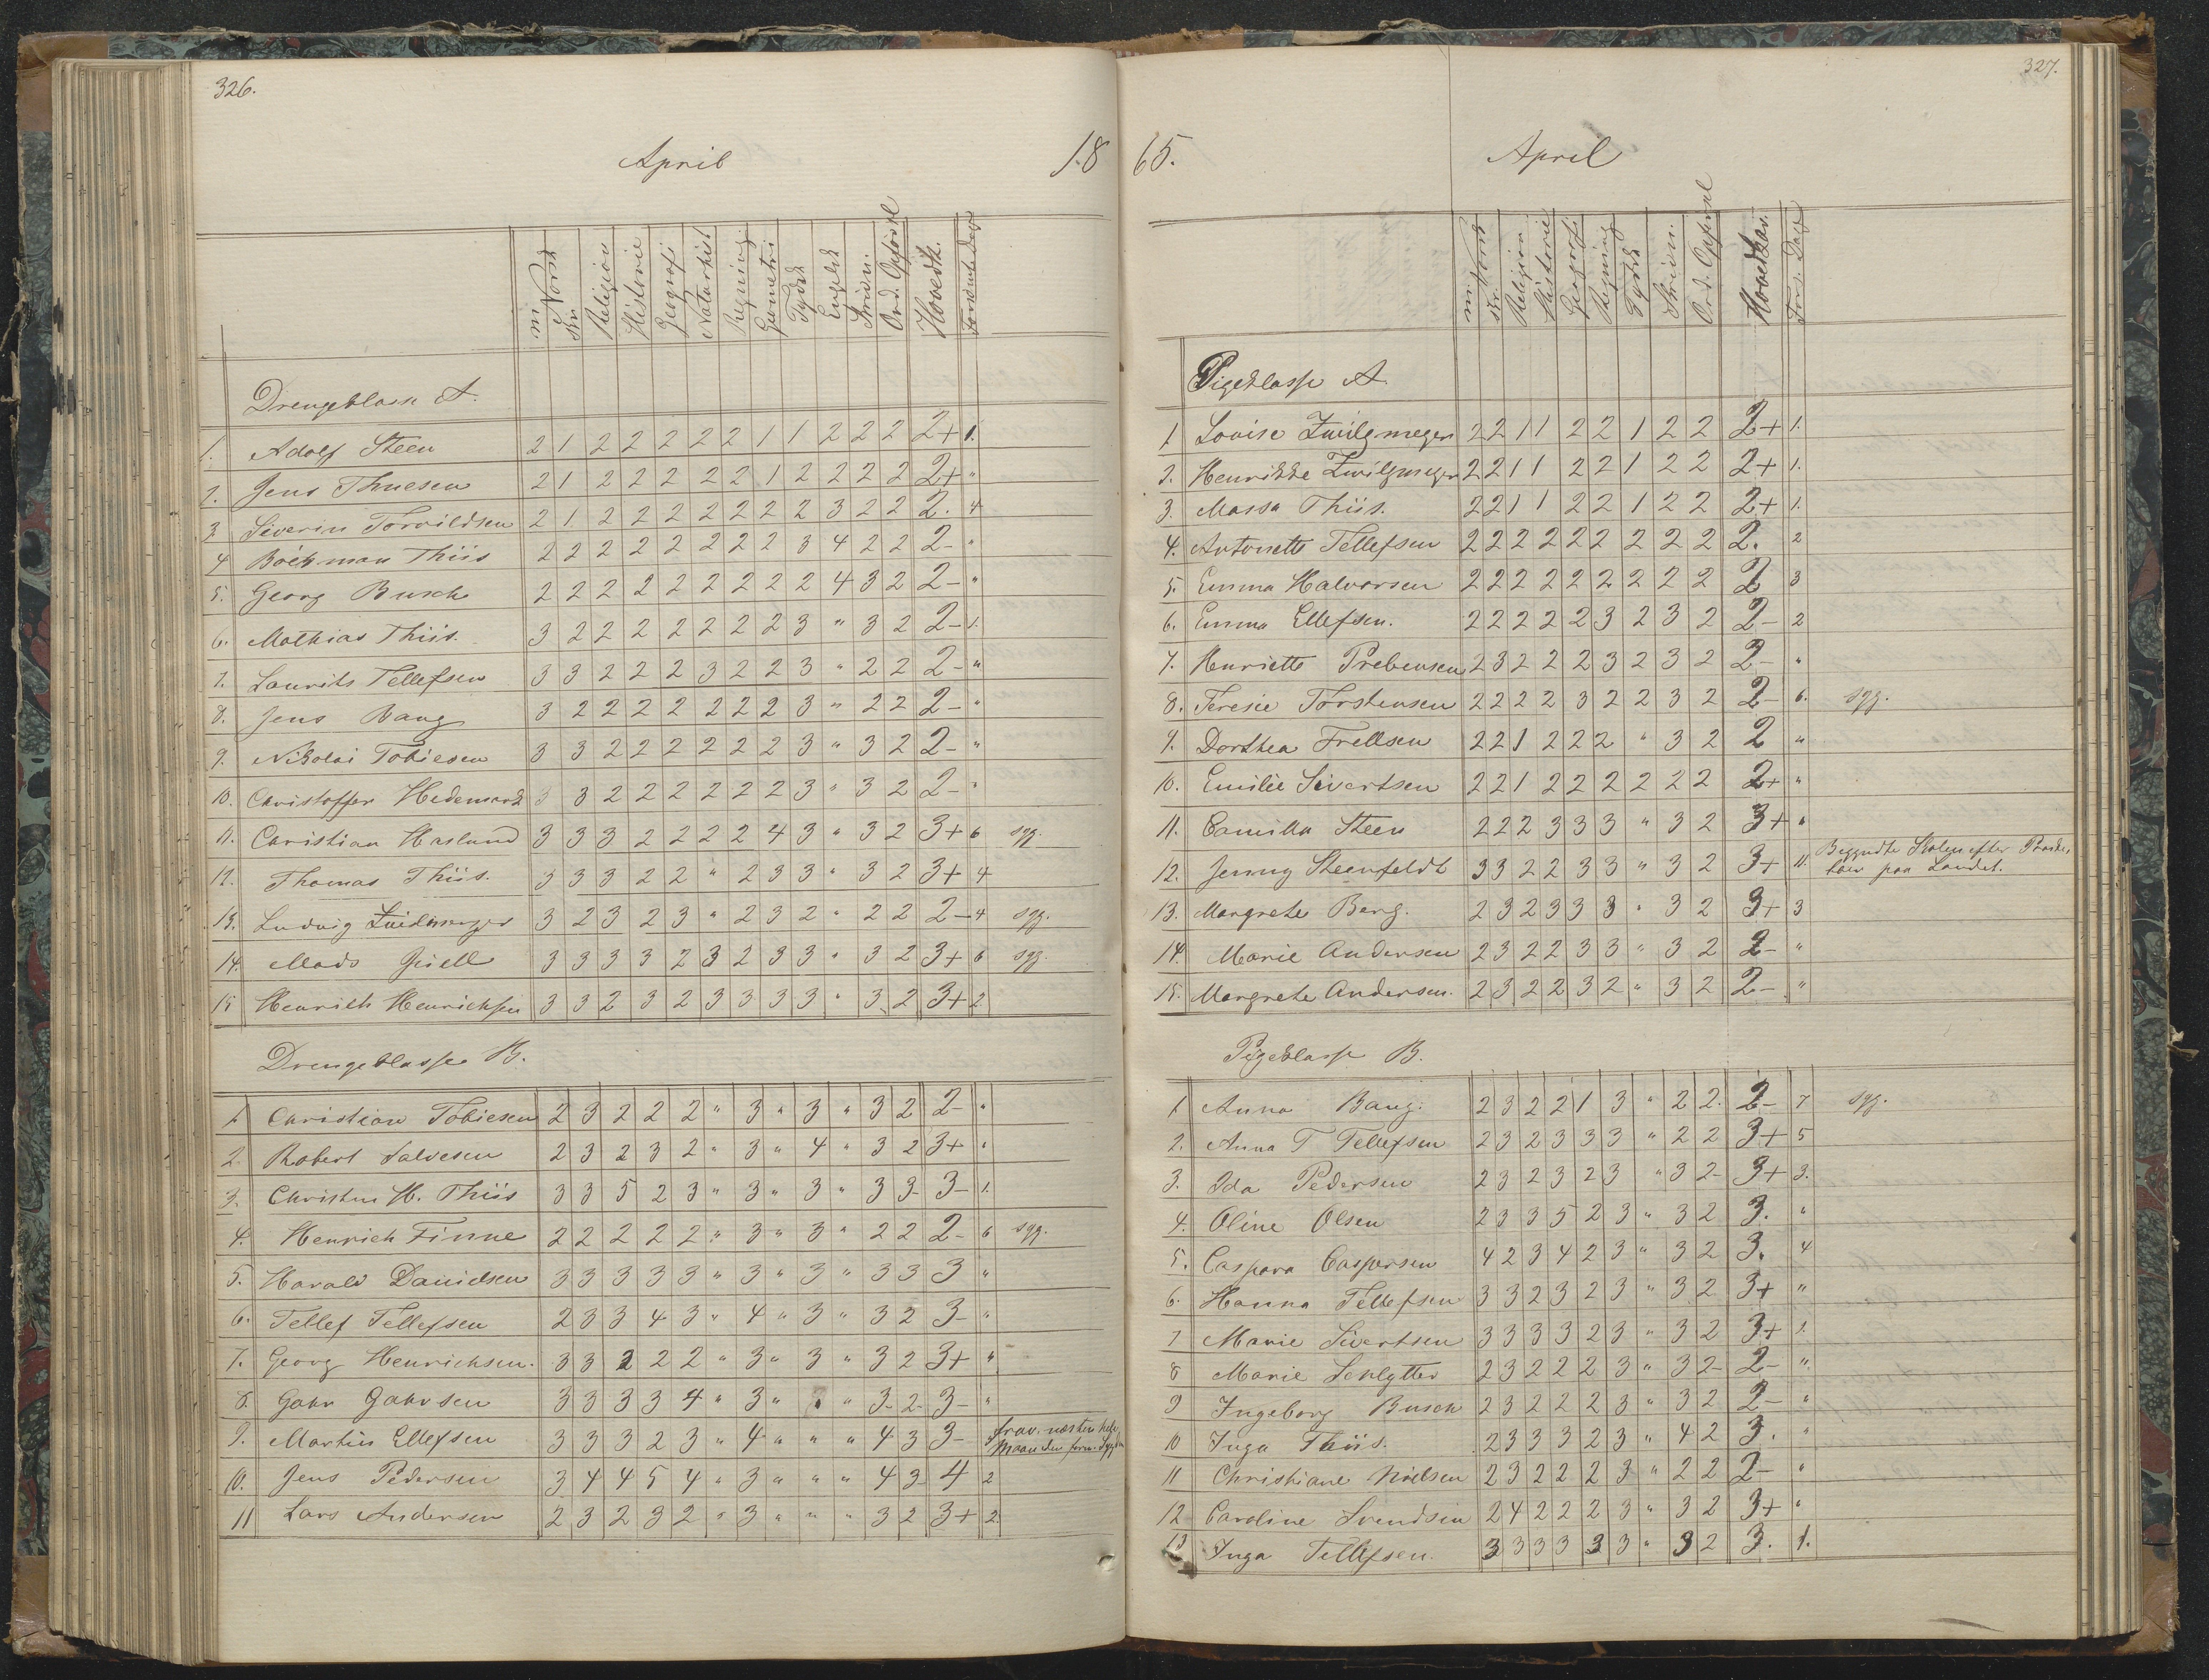 326.
April
18
m. Norsk Skr. Religion Historie Geografi Naturhist Regning Geometri Tydsk Engelsk Skrivn. Ord. Opførsel Hovedk. Forsømte Dage
Drengeklasse A.
1. Adolf Steen 2 1 2 2 2 2 2 1 1 2 2 2 2+ 1.
2. Jens Thuesen 2 1 2 2 2 2 2 1 2 2 2 2 2+ "
3. Siverin Torvildsen 2 1 2 2 2 2 2 2 2 3 2 2 2. 4
4 Böckman Thiis 2 2 2 2 2 2 2 2 3 4 2 2 2- "
5. Georg Busch 2 2 2 2 2 2 2 2 2 4 3 2 2- "
6. Mathias Thiis. 3 2 2 2 2 2 2 2 3 " 3 2 2- 1.
7. Laurits Tellefsen 3 3 2 2 2 3 2 2 3 " 2 2 2- "
8. Jens Bang 3 2 2 2 2 2 2 2 3 " 2 2 2- "
9. Nikolai Tobiesen 3 3 2 2 2 2 2 2 3 " 3 2 2- "
10. Christoffer Hedemark 3 3 2 2 2 2 2 2 3 " 3 2 2- "
11. Christian Haslund 3 3 3 2 2 2 2 4 3 " 3 2 3+ 6 syg.
12. Thomas Thiis. 3 3 3 2 2 " 2 3 3 " 3 2 3+ 4
13. Ludvig Zwilgmeyer 3 2 3 2 3 " 2 3 2 " 2 2 2- 4 syg.
14. Mads Juell 3 3 3 3 2 3 2 3 3 " 3 2 3+ 6 syg.
15 Henrich Henrichsen 3 3 2 3 2 3 3 3 3 " 3 2 3+ 2
Drengeklasse B.
1. Christian Tobiesen 2 3 2 2 2 " 3 " 3 " 3 2 2- "
2. Robert Salvesen 2 3 2 3 2 " 3 " 4 " 3 2 3+ "
3. Christen H. Thiis 3 3 5 2 3 " 3 " 3 " 3 3 3- 1.
4. Henrich Finne 2 2 2 2 2 " 3 " 3 " 2 2 2- 6 syg.
5. Harald Danielsen 3 3 3 3 3 " 3 " 3 " 3 3 3 "
6. Tellef Tellefsen 2 3 3 4 3 " 4 " 3 " 3 2 3- "
7. Georg Henrichsen. 3 3 2 2 2 " 3 " 3 " 3 2 3+ "
8. Gahr Gahrsen 3 3 3 3 4 " 3 " " 3 2 3- "
9. Martin Ellefsen 3 3 3 2 3 " 4 " " " 4 3 3- frav. næsten hele
Maaneden form. Sygdom
10. Jens Pedersen 3 4 4 5 4 " 3 " " " 4 3 4 2
11 Lars Andersen 2 3 2 3 2 " 3 " " " 3 2 3+ 2.
327.
65.
April
m. Norsk skr. Religion Historie Geografi Regning Tydsk Skrivn. Ord. Opførsel Hovedkar. Fors. Dage
Pigeklasse A.
1 Lovise Zwilgmeyer 2 2 1 1 2 2 1 2 2 2+ 1.
2. Henrikke Zwilgmeyer 2 2 1 1 2 2 1 2 2 2+ 1.
3. Massa Thiis. 2 2 1 1 2 2 1 2 2 2+ 1.
4. Antonette Tellefsen 2 2 2 2 2 2 2 2 2 2. 2
5. Emma Halvorsen 2 2 2 2 2 2 2 2 2 2 3
6. Emma Ellefsen. 2 2 2 2 2 3 2 3 2 2- 2
7. Henriette Prebensen 2 3 2 2 2 3 2 3 2 2- "
8. Teresie Torstensen 2 2 2 2 3 2 2 3 2 2- 6. syg.
9. Dorthea Frellsen 2 2 1 2 2 2 " 3 2 2 "
10. Emilie Sivertsen 2 2 1 2 2 2 2 2 2 2+ "
11. Camilla Steen 2 2 2 3 3 3 " 3 2 3+ "
12. Jenny Steenfeldt 3 3 2 2 3 3 " 3 2 3+ 11. Begyndte Skolen efter Paaske,
paa Landet.
13. Margrete Berg. 2 3 2 3 3 3 " 3 2 3+ 3
14. Marie Andersen 2 3 2 2 3 3 " 3 2 2- "
15. Margrete Andersen. 2 3 2 2 3 2 " 3 2 2- "
Pigeklasse B.
1 Anna Bang. 2 3 2 2 1 3 " 2 2. 2- 7 syg.
2. Anna T Tellefsen 2 3 2 3 3 3 " 2 2 3+ 5
3. Ida Pedersen 2 3 2 3 2 3 " 3 2 3+ 3.
4. Oline Olsen 2 3 3 5 2 3 " 3 2 3. "
5. Caspara Caspersen 4 2 3 4 2 3 " 3 2 3. 4
6. Hanna Tellefsen 3 3 2 3 2 3 " 3 2 3+ "
7 Marie Sivertsen 3 3 3 3 2 3 " 3 2 3+ 1.
8 Marie Schlytter 2 3 2 2 2 3 " 3 2 2- "
9 Ingeborg Busch 2 3 2 2 2 3 " 3 2 2- "
10 Inga Thiis. 2 3 3 3 2 3 " 4 2 3. "
11 Christiane Nielsen 2 3 2 2 2 3 " 2 2 2- "
12 Caroline Svendsen 2 4 2 2 2 3 " 3 2 3+ "
13 Inga Tellefsen. 3 3 3 3 3 3 " 3 2 3. 1.